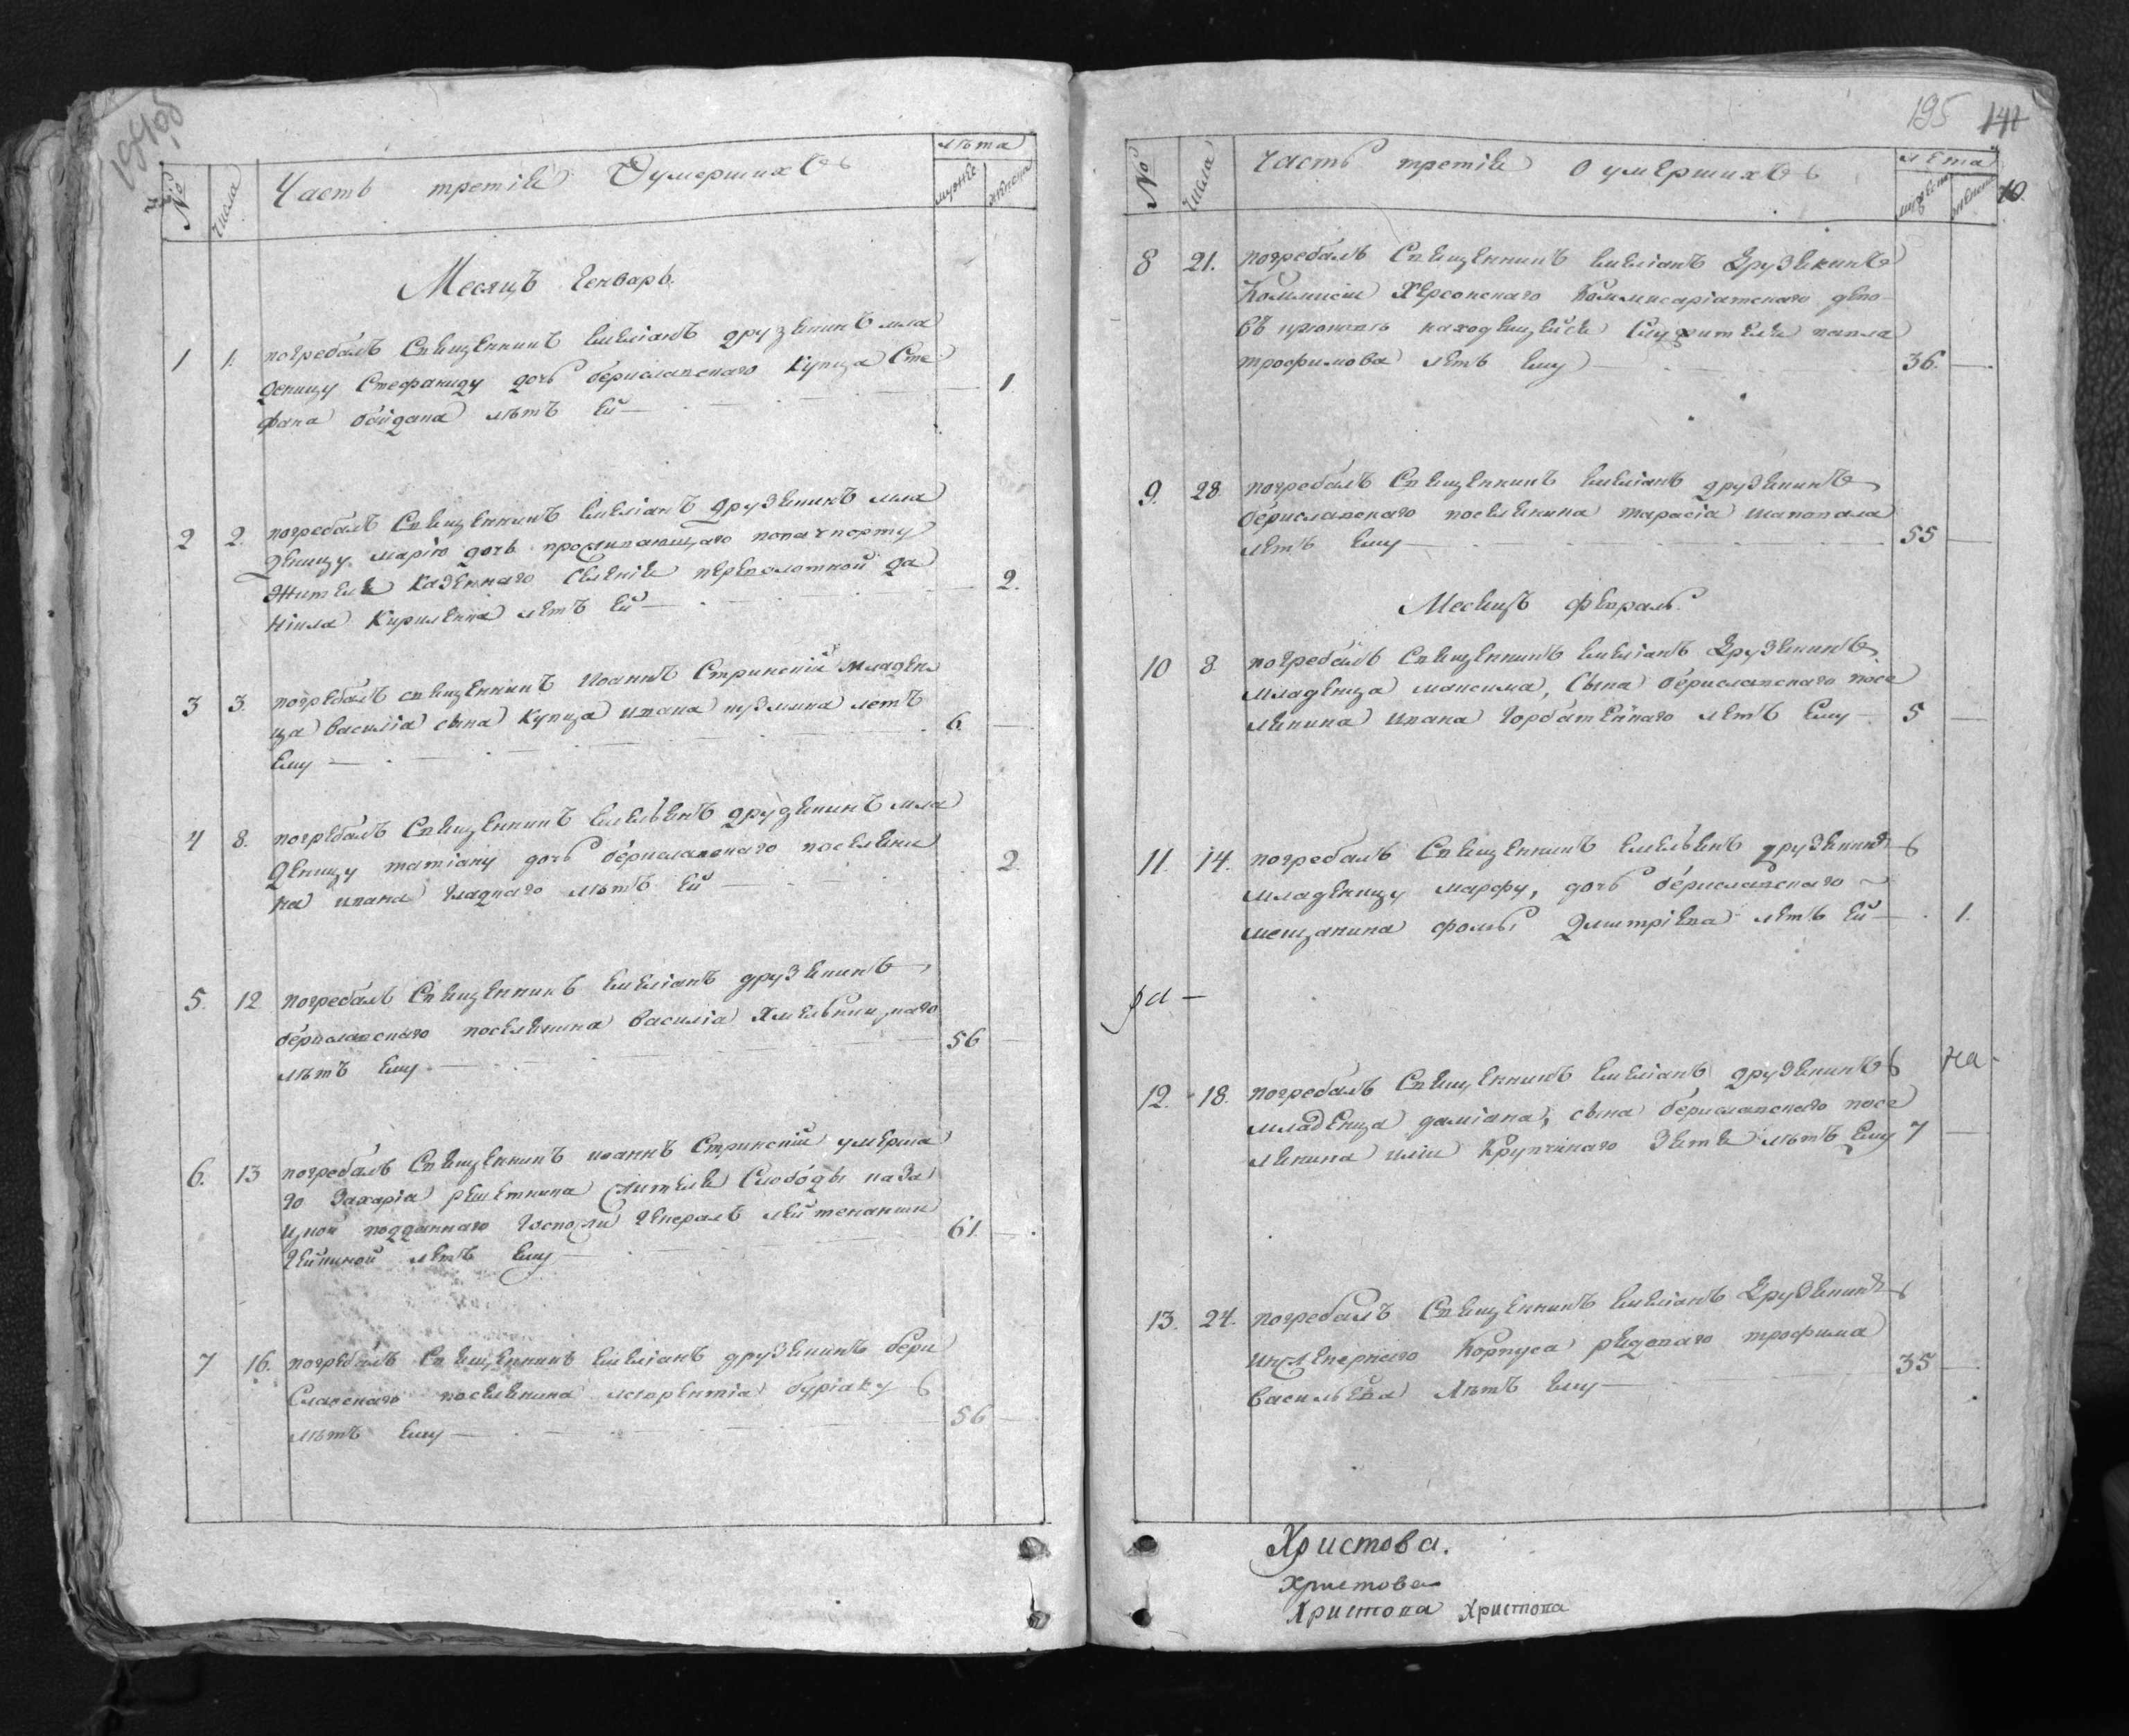 №
числа
Часть третія О умершихъ
лѣта
мужес
женска
Месяцъ Генварь.
1 1. погребалъ Священникъ Емеліанъ Друзекинъ мла
деницу Стефаниду дочь бериславского купца Сте
фана Бойдана лѣтъ ей — 1.
2 2. погребалъ Священникъ Емеліанъ Друзекинъ мла
деницу марію дочь проживающаго попачпорту
жителя казеннаго Селенія
ніила Кириленка летъ ей — 2.
3 3. погребалъ священникъ Иоаннъ Стринскій младен
ца василіа сына купца ивана кузмина летъ
ему — 6.
4 8. погребалъ Священникъ Емельянъ друзекинъ мла
деницу татіану дочь бериславского поселяни
на ивана Гладкаго лѣтъ ей — 2.
5. 12 погребалъ Священникъ Емеліанъ друзекинъ
бериславского поселянина василіа Хмельницкаго
лѣтъ ему — 56
6. 13 погребалъ Священникъ иоаннъ Стринскій умерша
го Захаріа решеткина жителя Слободы каза
цкой подданнаго Госпожи Генералъ лейтенантши
летъ ему — 61.
7 16. погребалъ Священникъ Емеліанъ друзекинъ бери
Славского поселянина буріаку
лѣтъ ему — 56
195
№
числа
Часть третія О умершихъ
лета
10.
8 21. погребалъ Священникъ Емеліанъ Друзекинъ
Коммисіи Херсонского Коммисаріатского депо
находящейся Служителя павла
трофимова летъ ему — 36.
9. 28 погребалъ Священникъ Емеліанъ друзекинъ
бериславского поселянина тарасіа шаповала
летъ ему — 55
Месяцъ февраль.
10 8 погребалъ Священникъ Емеліанъ Друзекинъ
младенца максима, сына бериславского посе
лянина ивана Горбатенкаго летъ ему 5
11. 14. погребалъ Священникъ Емельянъ друзекинъ
младеницу марфу, дочь бериславского
мещанина фомы Дмитріева летъ ей — 1.
ра —
на —
12. 18. погребалъ Священникъ Емеліанъ друзекинъ
младенца даміана, сына бериславского посе
лянина иліи Крупчинаго Зятя лѣтъ ему 7
13. 24. погребалъ Священникъ Емеліанъ Друзекинъ
инженернаго Корпуса редоваго трофима
васильева лѣтъ ему — 35
Христова.
Христова
Христова Христова